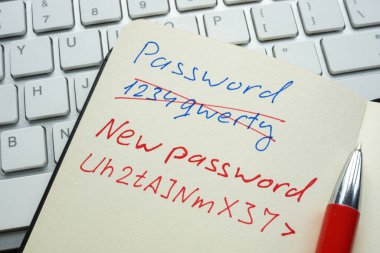 Password
1234qwerty
New password
Uh2tAJNmX37>